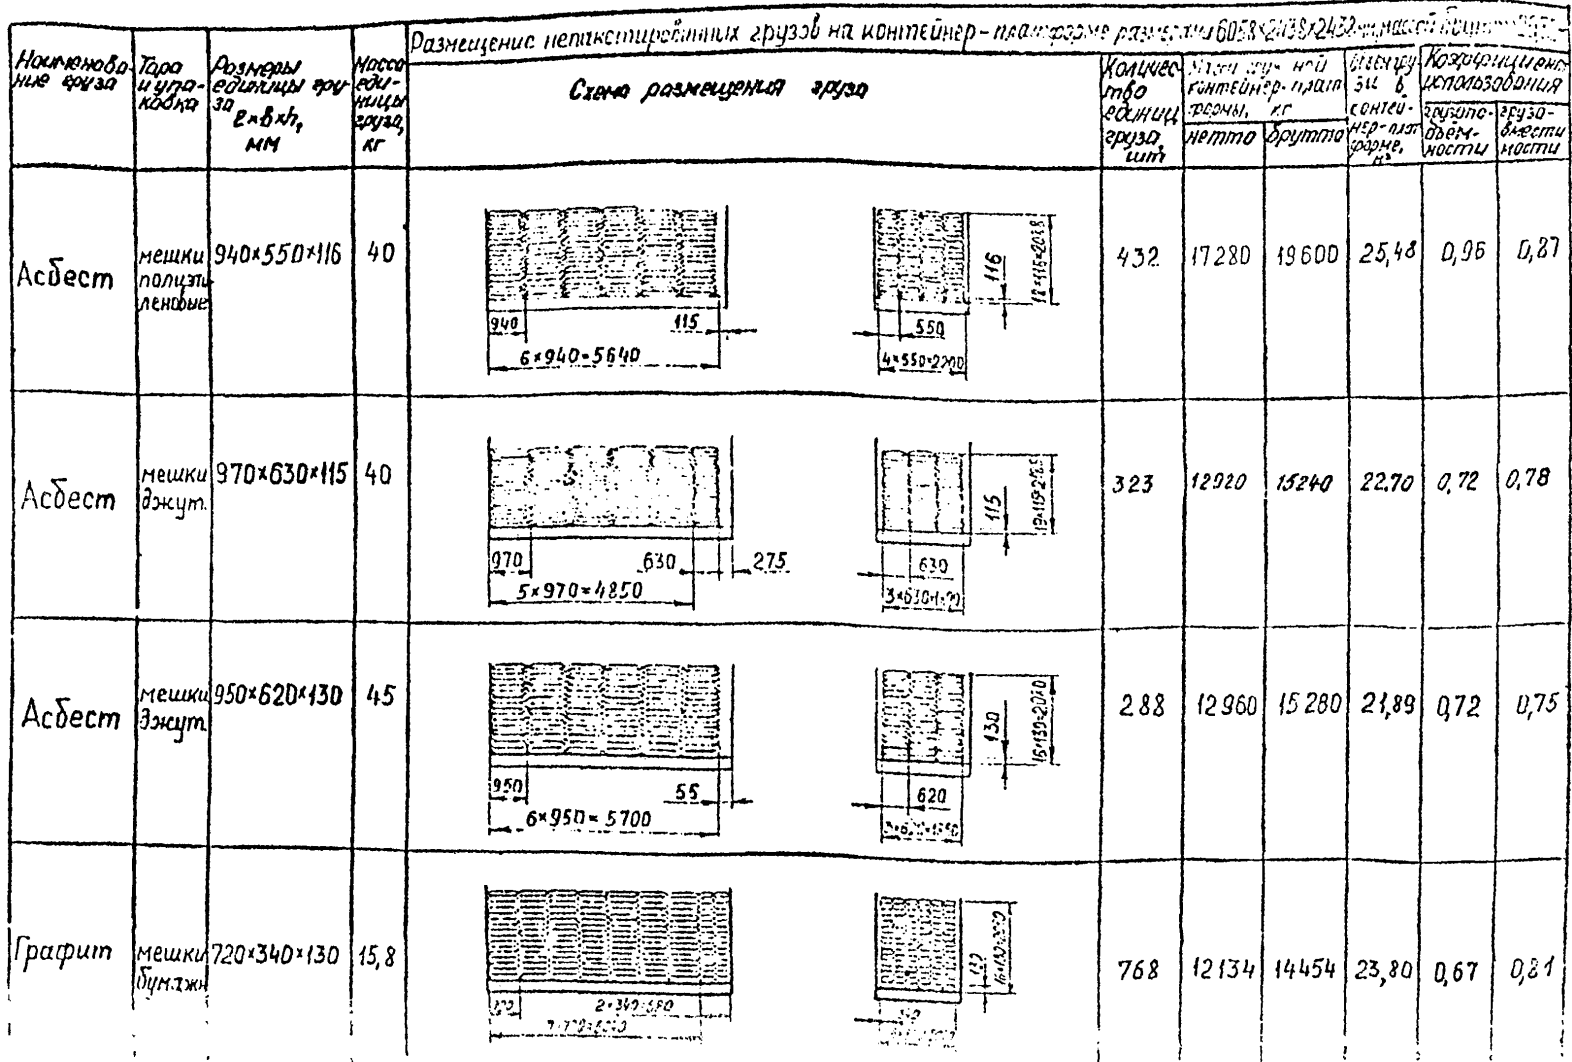 Размещение непакетированных грузов на контейнер-платформе размерами 6058×2438×2432 мм, массой брутто
Наименова-
ние груза
Тара
и упа-
ковка
Размеры
единицы гру-
за
ℓ×в×h,
мм
Масса
еди-
ницы
груза,
кг
Схема размещения груза
Количес-
тво
единиц
груза,
шт
контейнер-плат
формы, кг
нетто
брутто
в
контей-
нер-плат
форме,
м³
Коэффициент
использования
грузопо-
дъем-
ности
грузо-
вмести
мости
Асбест
мешки
полиэти
леновые
940×550×116
40
940
115
6×940=5640
116
550
4×550=2200
432
17280
19600
25,48
0,96
0,87
Асбест
мешки
джут.
970×630×115
40
970
630
275
5×970=4850
115
630
323
12920
15240
22,70
0,72
0,78
Асбест
мешки
джут.
950×620×130
45
950
55
6×950=5700
130
16×130=2080
620
288
12960
15280
21,89
0,72
0,75
Графит
мешки
бумажн
720×340×130
15,8
2×340=680
768
12134
14454
23,80
0,67
0,81